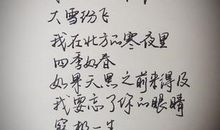 大雪纷飞
我在北方的寒夜里
四季如春
如果天黑之前来得及
我要忘了你的眼睛
穷极一生